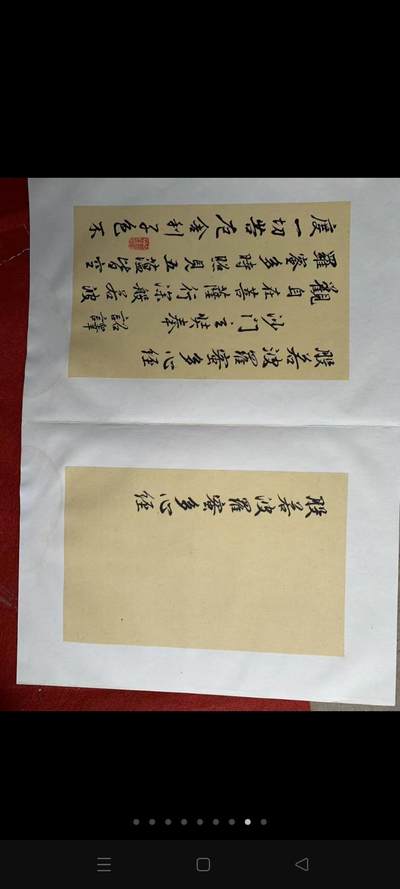 般若波羅蜜多心經
般若波羅蜜多心經
沙门玄奘奉 詔譯
觀自在菩薩行深般若波
羅蜜多時照見五蘊皆空
度一切苦厄舍利子色不